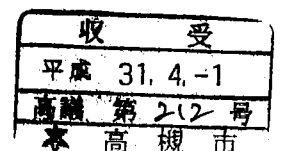 収 受
平成 31. 4. -1
高議 第 212 号
高槻市